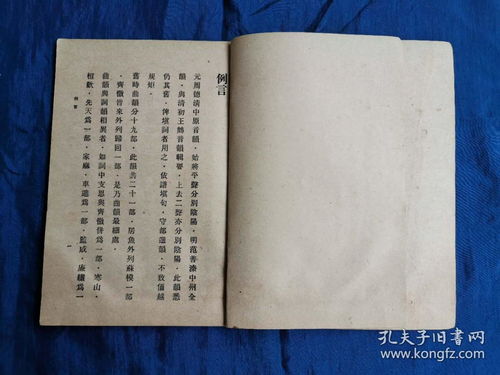 例言
元周德清中原音韻·始將平聲分別陰陽·明范善溱中州全
韻·與清初王鵕音韻輯要·上去二聲亦分別陰陽·此韻悉
仍其舊·俾填詞者用之·依譜填句·守部選韻·不致偭越
規矩·
舊時曲韻分十九部·此韻共二十一部·居魚外列蘇模一部
·齊微皆來外列歸回一部·是乃曲韻最細處·
曲韻與詞韻相異者·如詞中支思與齊微併爲一部·寒山·
桓歡·先天爲一部·家麻·車遮爲一部·監咸·廉纖爲一
例言
一
孔夫子旧书网
www.kongfz.com